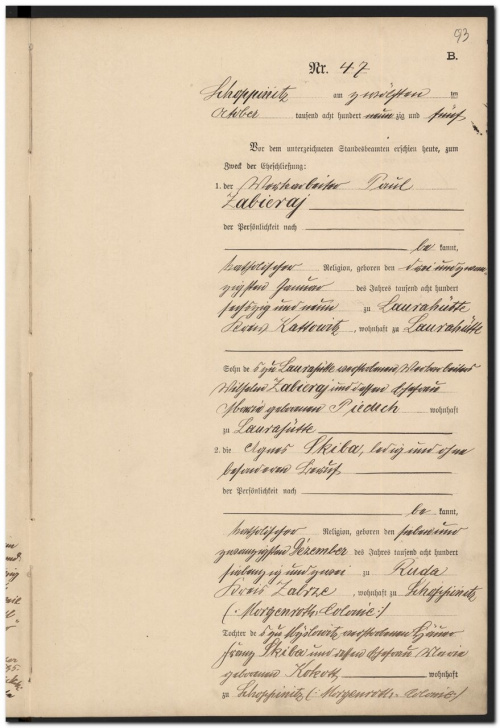 93
B.
Nr. 47
Schoppinitz am zwölften ten
October tausend acht hundert neunzig und fünf
Vor dem unterzeichneten Standesbeamten erschien heute, zum
Zweck der Eheschließung:
1. der Werkarbeiter Paul
Zabieraj
der Persönlichkeit nach
be kannt,
katholischer Religion, geboren den drei und zwan-
zigsten Januar des Jahres tausend acht hundert
sechszig und neun zu Laurahütte
Kreis Kattowitz, wohnhaft zu Laurahütte
Sohn des zu Laurahütte verstorbenen Werkarbeiters
Wilhelm Zabieraj und dessen Ehefrau
Maria geborenen Piedsch wohnhaft
zu Laurahütte
2. die Agnes Skiba, ledig und ohne
besonderen Beruf
der Persönlichkeit nach
be kannt,
katholischer Religion, geboren den sieben und
zwanzigsten Dezember des Jahres tausend acht hundert
siebenzig und zwei zu Ruda
Kreis Zabrze, wohnhaft zu Schoppinitz
(: Morgenroth-Colonie :)
Tochter des zu Myslowitz verstorbenen Häuer
Franz Skiba und dessen Ehefrau Marie
geborenen Kokott, wohnhaft
zu Schoppinitz (: Morgenroth-Colonie :)